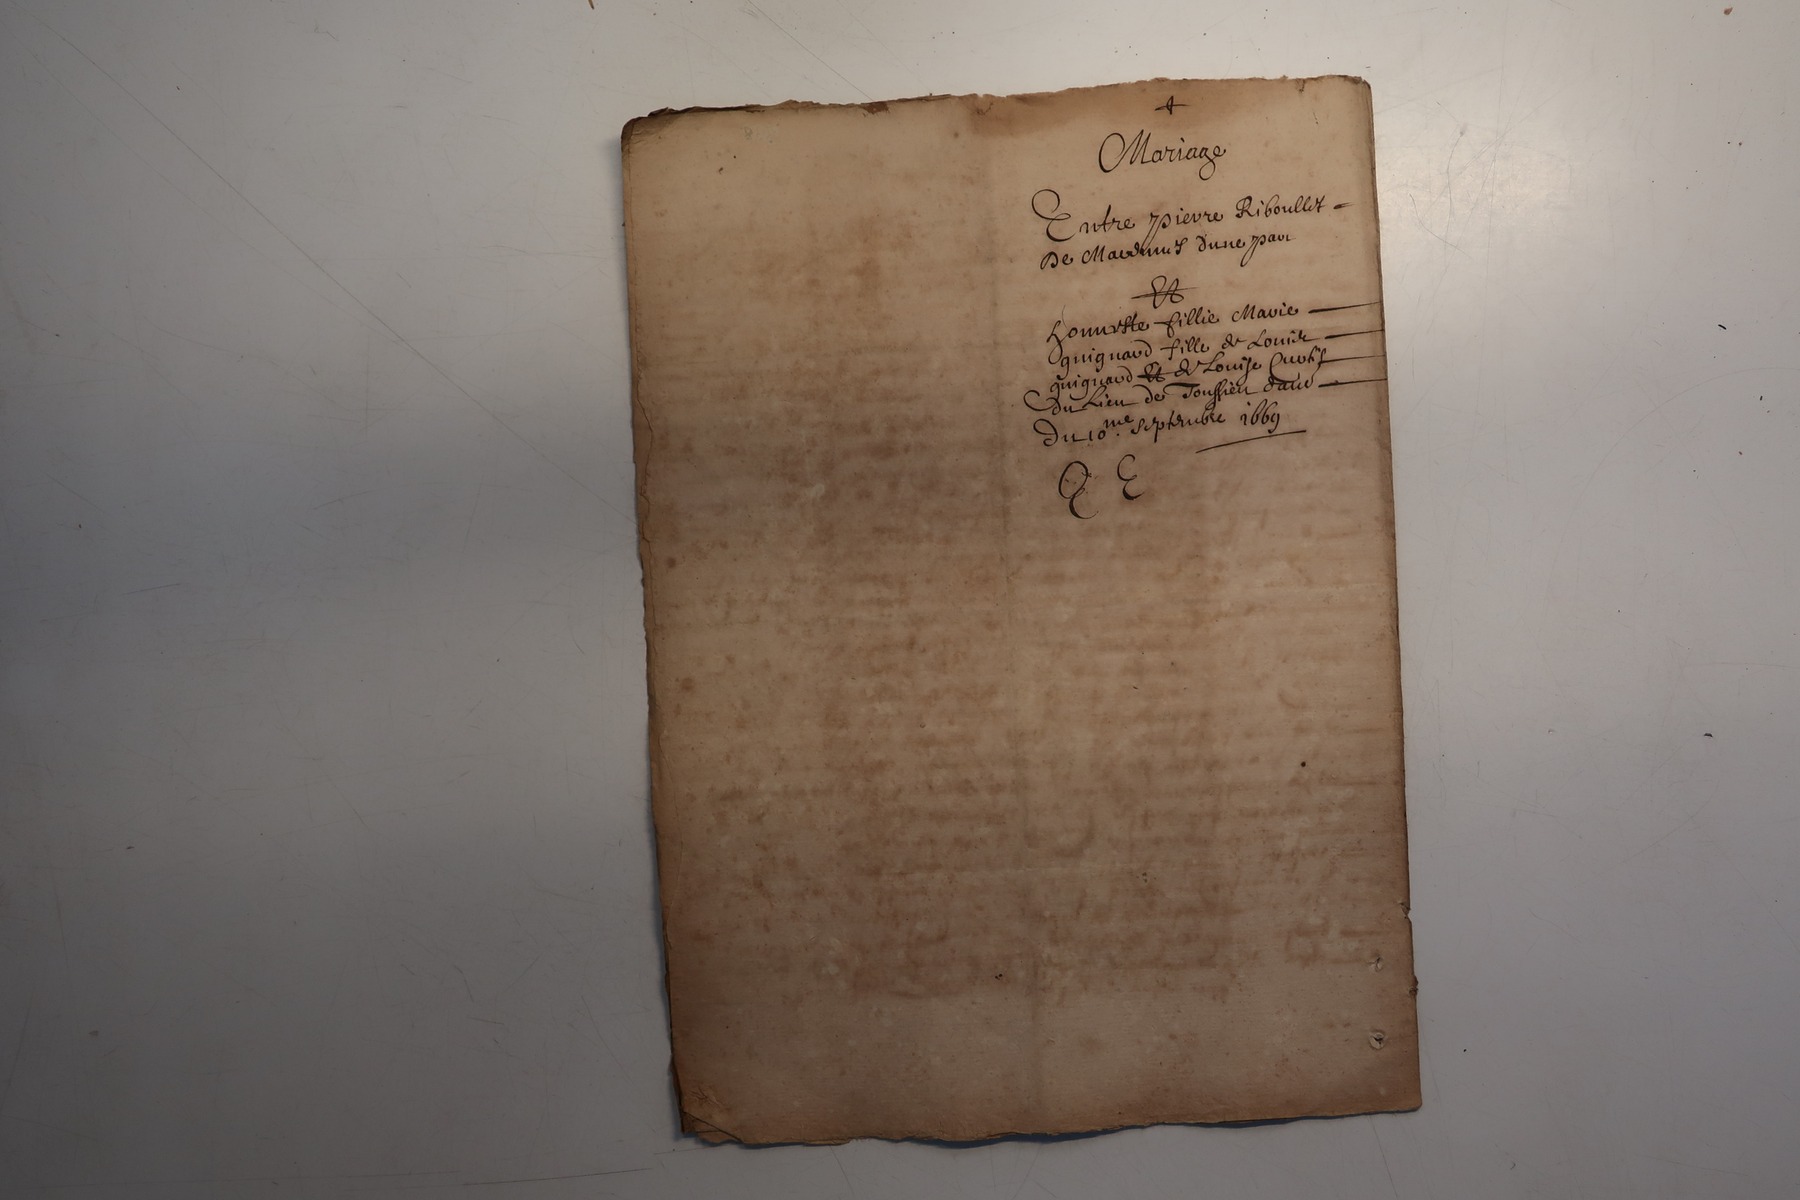 Mariage
Entre pierre Riboullet
De dune part
Et
honneste fillie Marie
guignard fille de Louis
guignard Et de Louise
du Lieu de Toussieu
Du 10me septembre 1669